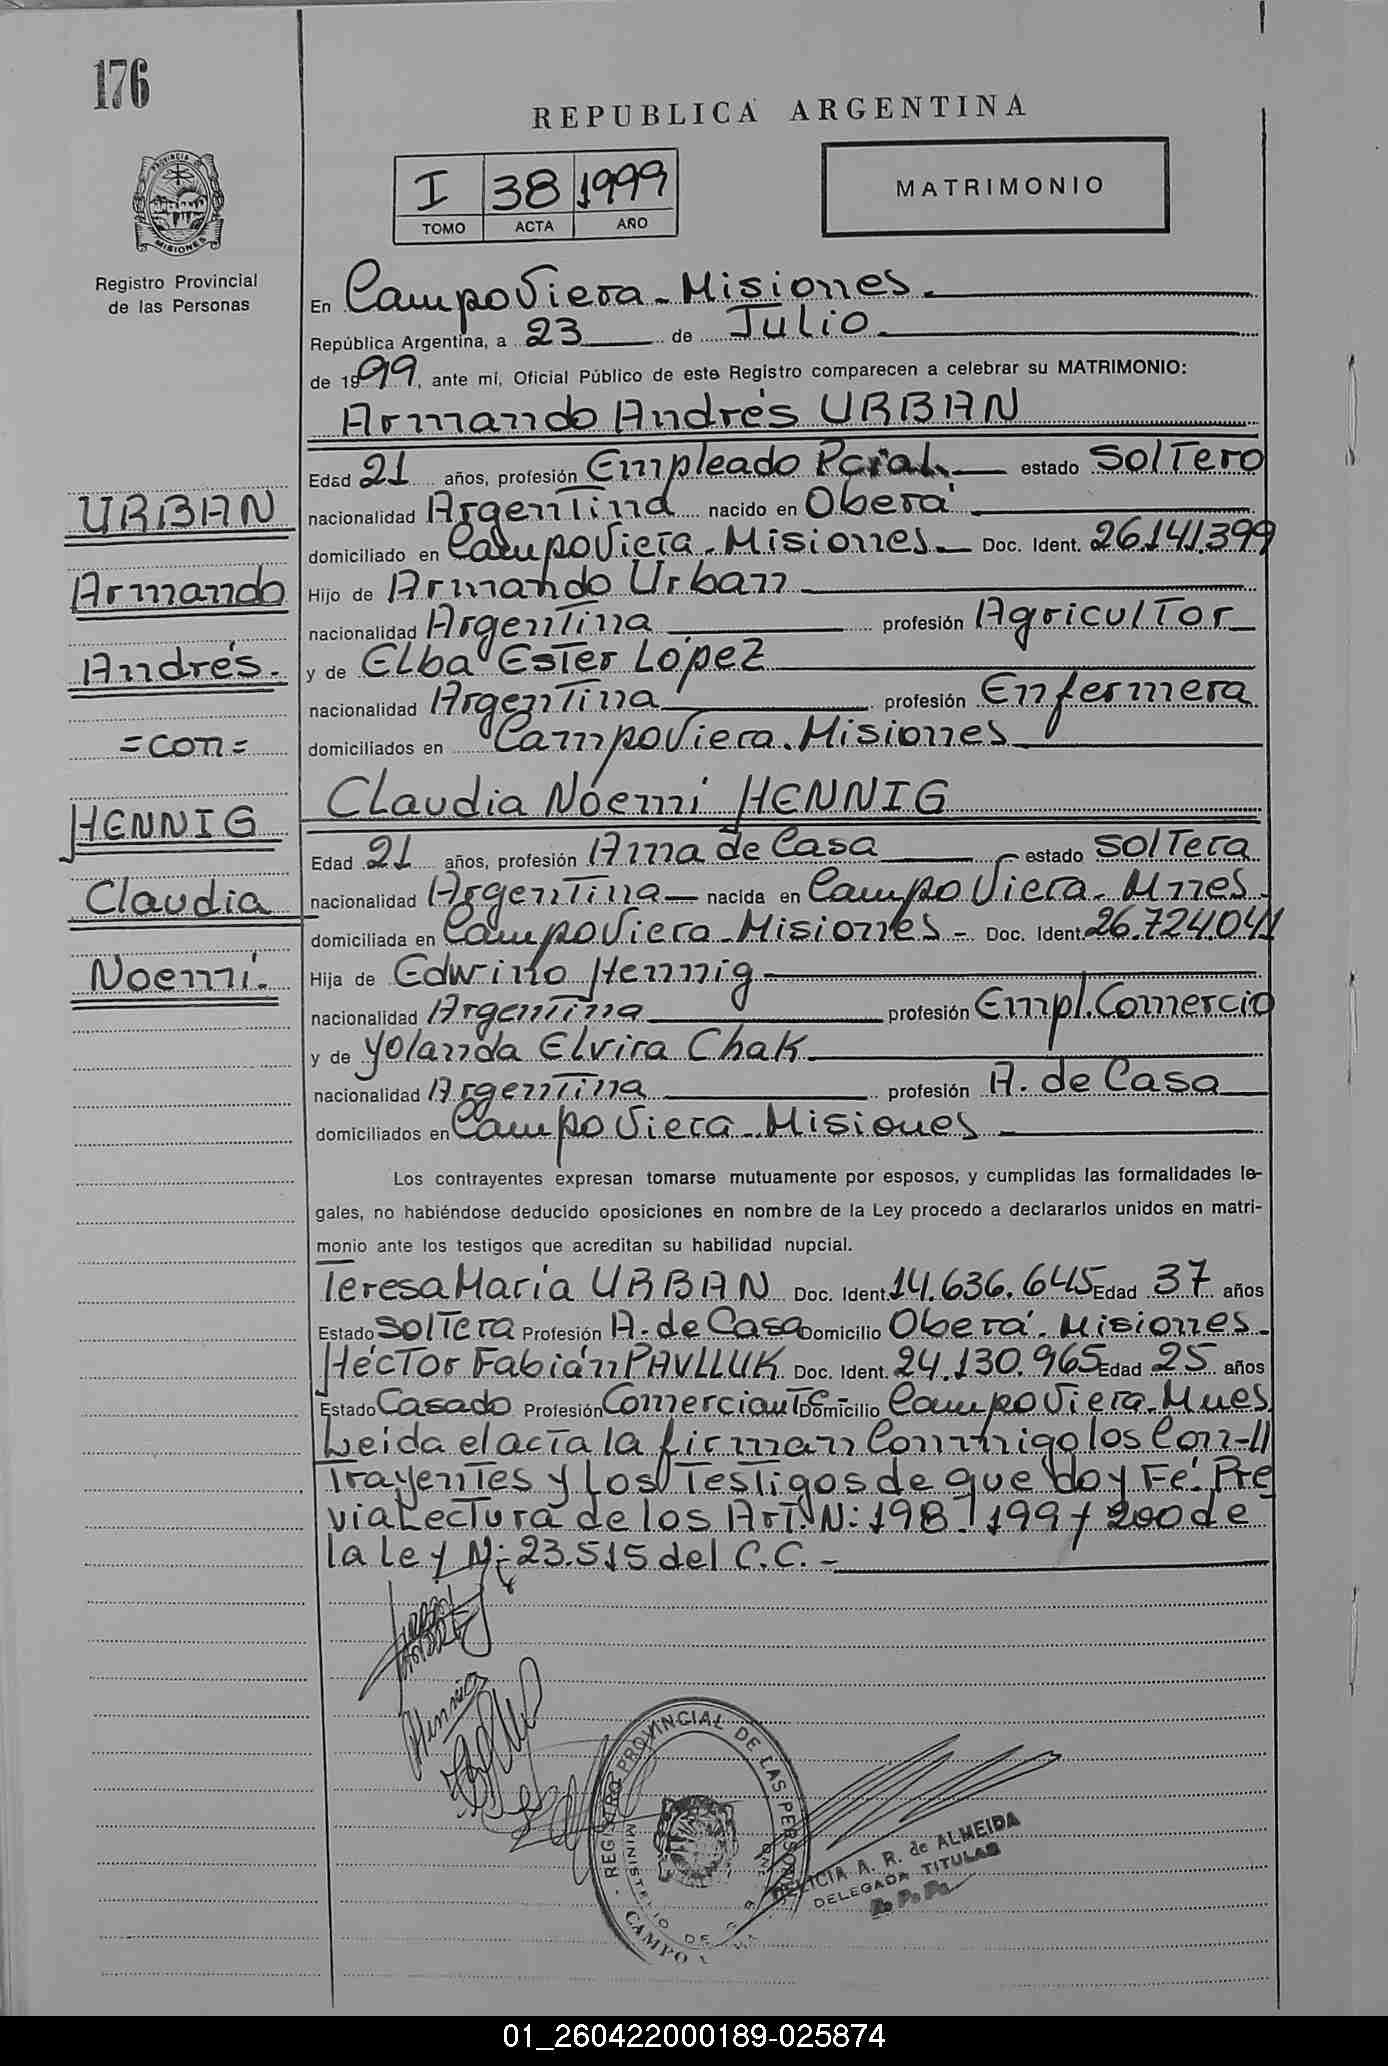 176
REPUBLICA ARGENTINA
I 38 1999
TOMO ACTA AÑO
MATRIMONIO
PROVINCIA DE
MISIONES
Registro Provincial
de las Personas
En Campo Viera - Misiones.
República Argentina, a 23 de Julio.
de 1999, ante mí, Oficial Público de este Registro comparecen a celebrar su MATRIMONIO:
Armando Andrés URBAN
Edad 21 años, profesión Empleado Pcial. estado Soltero
nacionalidad Argentina nacido en Oberá
domiciliado en Campo Viera - Misiones - Doc. Ident. 26.141.399
Hijo de Armando Urban
nacionalidad Argentina profesión Agricultor
y de Elba Ester López
nacionalidad Argentina profesión Enfermera
domiciliados en Campo Viera. Misiones
URBAN
Armando
Andrés.
=con=
HENNIG
Claudia
Noemí.
Claudia Nóemi HENNIG
Edad 21 años, profesión Ama de Casa estado Soltera
nacionalidad Argentina - nacida en Campo Viera - Mnes -
domiciliada en Campo Viera - Misiones - Doc. Ident. 26.724.041
Hija de Edwino Hennig
nacionalidad Argentina profesión Empl. Comercio
y de Yolanda Elvira Chak
nacionalidad Argentina profesión A. de Casa
domiciliados en Campo Viera - Misiones
Los contrayentes expresan tomarse mutuamente por esposos, y cumplidas las formalidades le-
gales, no habiéndose deducido oposiciones en nombre de la Ley procedo a declararlos unidos en matri-
monio ante los testigos que acreditan su habilidad nupcial.
Teresa María URBAN Doc. Ident. 14.636.645 Edad 37 años
Estado Soltera Profesión A. de Casa Domicilio Oberá - Misiones -
Héctor Fabián PAVLLUK Doc. Ident. 24.130.965 Edad 25 años
Estado Casado Profesión Comerciante - Domicilio Campo Viera - Mnes
Leida el acta la firman Conmigo los Con-//
Trayentes y Los Testigos de que doy Fé. Pre
via Lectura de los Art. N: 198. 199 y 200 de
la Ley N: 23.515 del C.C. -
Hennig
REGISTRO PROVINCIAL DE LAS PERSONAS
MINISTERIO DE
CAMPO
A. R. de ALMEIDA
DELEGADA TITULAR
R. P. P.
01_260422000189-025874